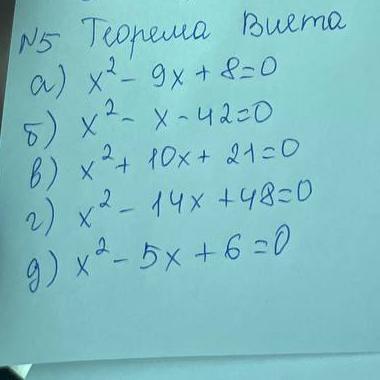 N5 Теорема Виета
а) x² - 9x + 8=0
б) x² - x - 42=0
в) x² + 10x + 21=0
г) x² - 14x + 48=0
д) x² - 5x + 6=0